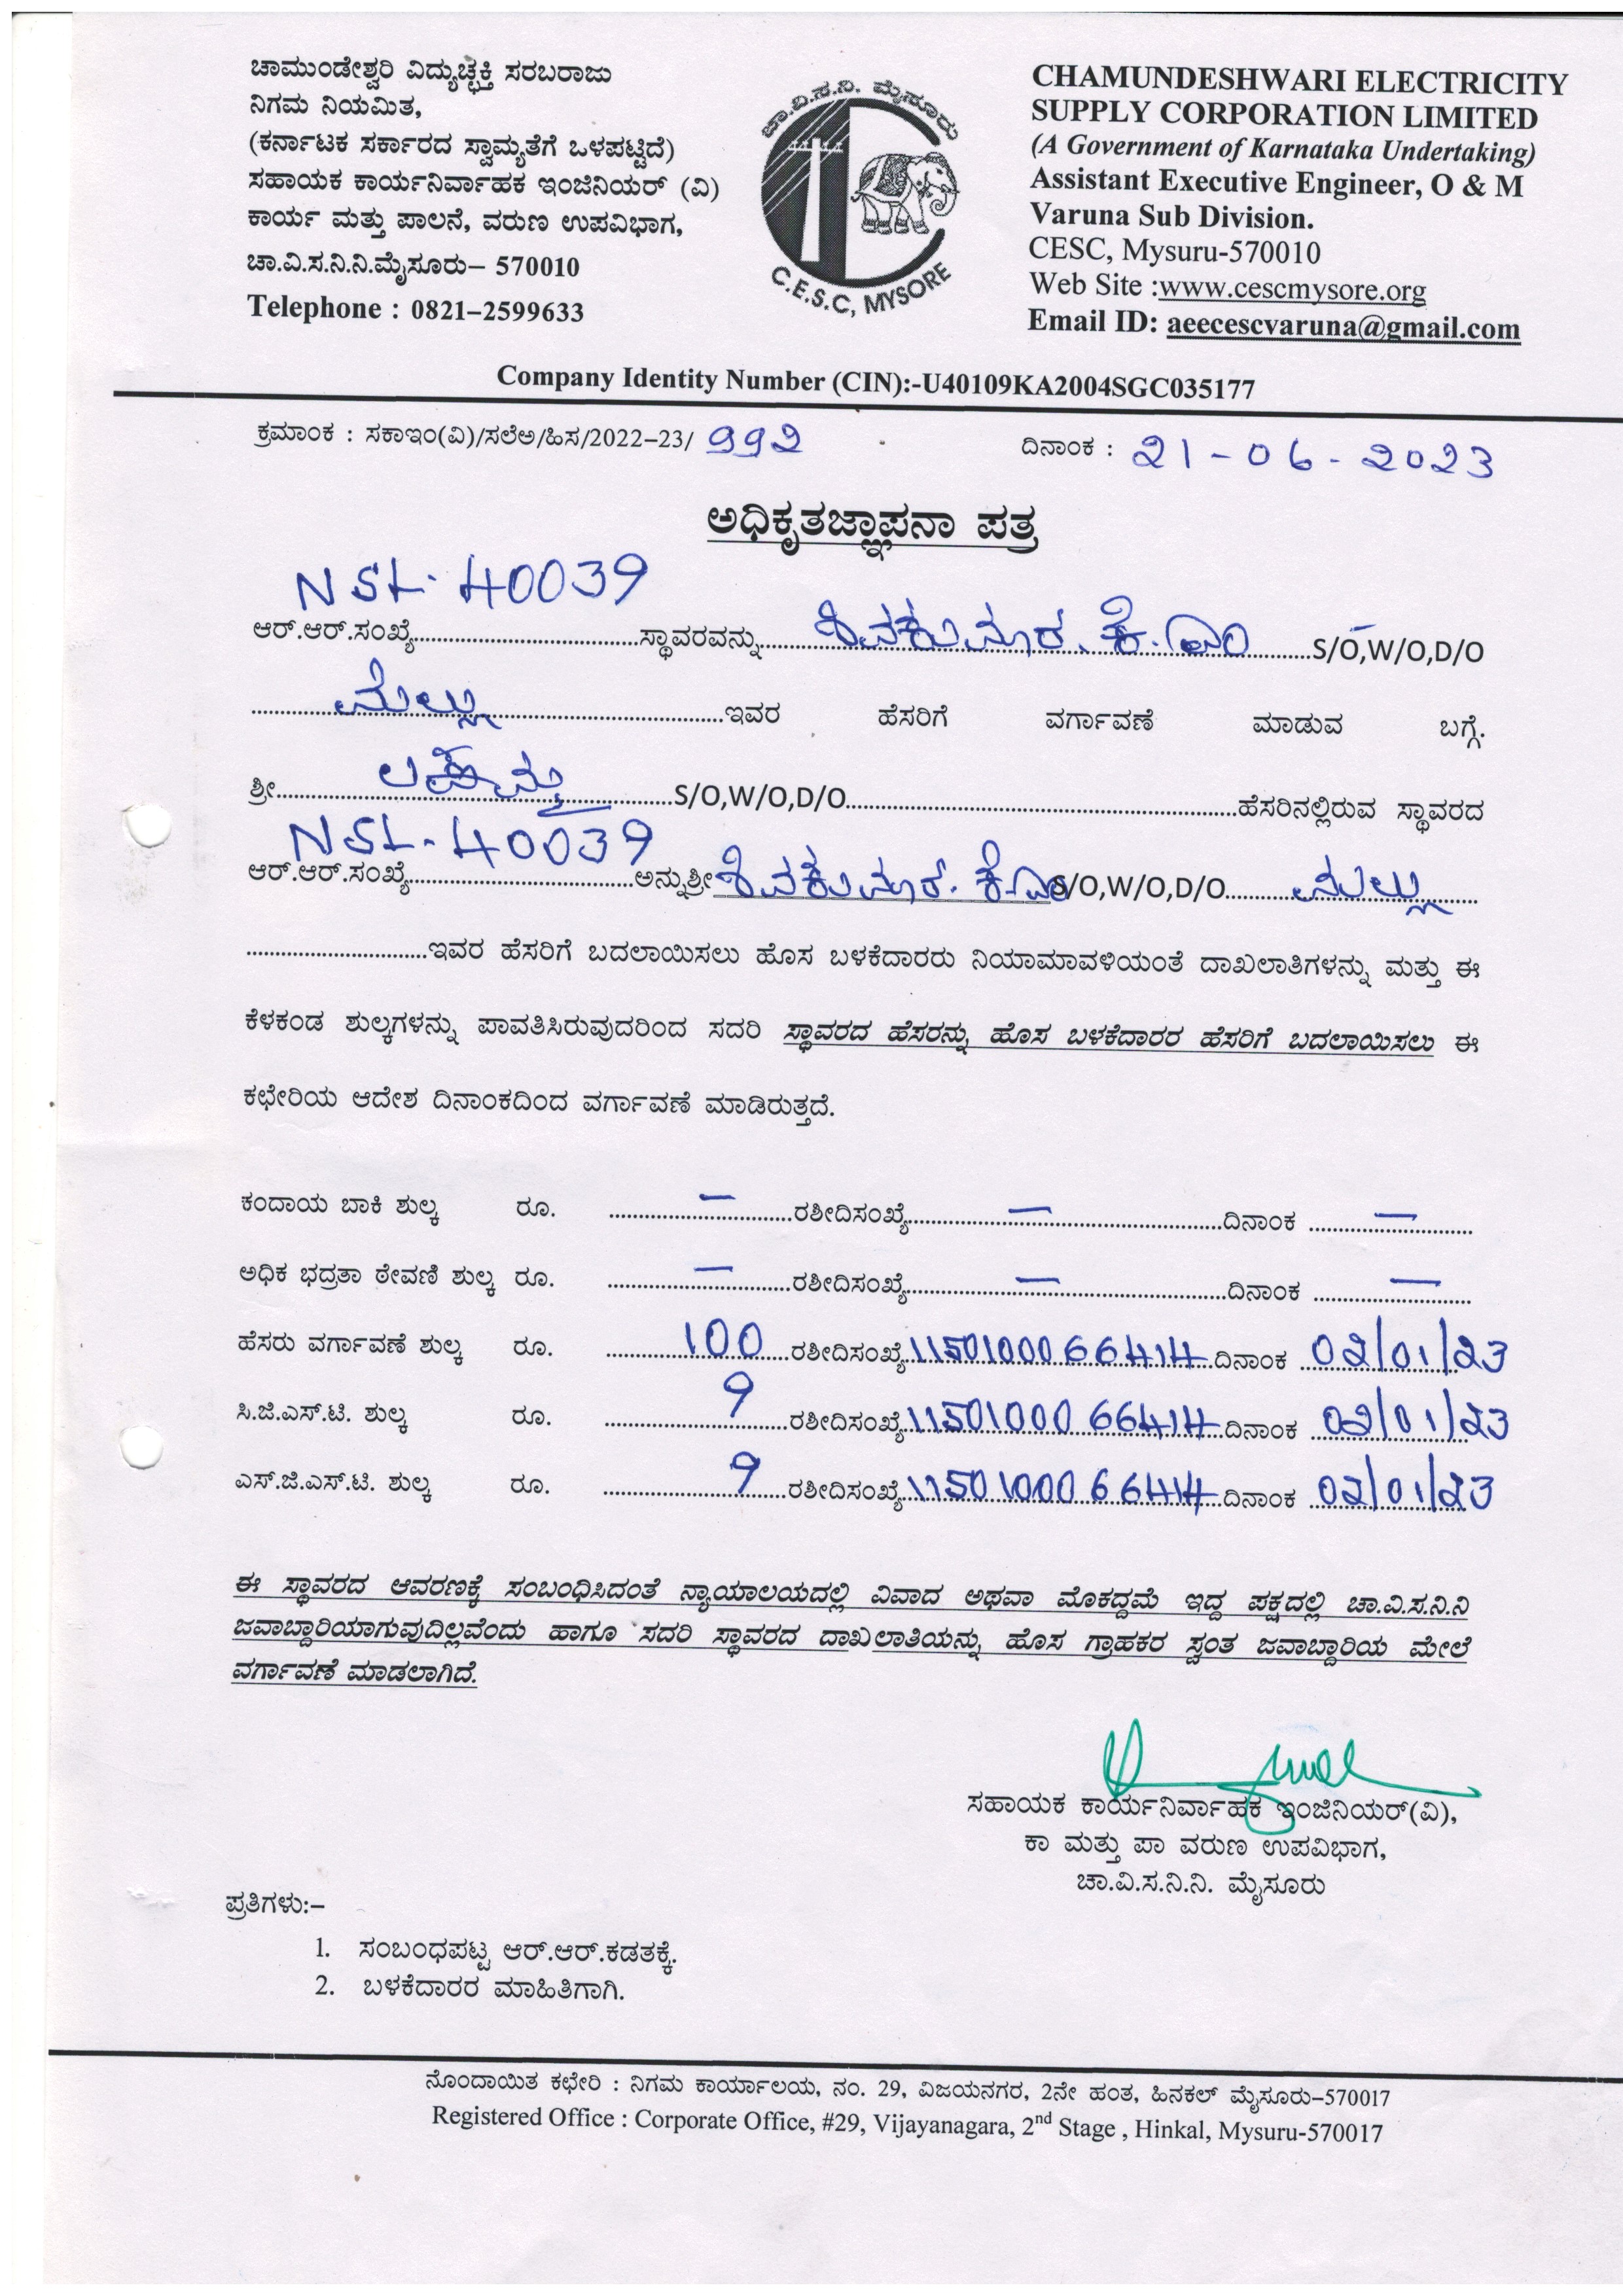 ಚಾಮುಂಡೇಶ್ವರಿ ವಿದ್ಯುಚ್ಛಕ್ತಿ ಸರಬರಾಜು
ನಿಗಮ ನಿಯಮಿತ,
(ಕರ್ನಾಟಕ ಸರ್ಕಾರದ ಸ್ವಾಮ್ಯತೆಗೆ ಒಳಪಟ್ಟಿದೆ)
ಸಹಾಯಕ ಕಾರ್ಯನಿರ್ವಾಹಕ ಇಂಜಿನಿಯರ್ (ವಿ)
ಕಾರ್ಯ ಮತ್ತು ಪಾಲನೆ, ವರುಣ ಉಪವಿಭಾಗ,
ಚಾ.ವಿ.ಸ.ನಿ.ನಿ.ಮೈಸೂರು– 570010
Telephone : 0821–2599633
ಚಾ.ವಿ.ಸ.ನಿ. ಮೈಸೂರು
C.E.S.C, MYSORE
CHAMUNDESHWARI ELECTRICITY
SUPPLY CORPORATION LIMITED
(A Government of Karnataka Undertaking)
Assistant Executive Engineer, O & M
Varuna Sub Division.
CESC, Mysuru-570010
Web Site :www.cescmysore.org
Email ID: aeecescvaruna@gmail.com
Company Identity Number (CIN):-U40109KA2004SGC035177
ಕ್ರಮಾಂಕ : ಸಕಾಇಂ(ವಿ)/ಸಲೆಅ/ಹಿಸ/2022–23/ 992 ದಿನಾಂಕ : 21-06-2023
ಅಧಿಕೃತಜ್ಞಾಪನಾ ಪತ್ರ
ಆರ್.ಆರ್.ಸಂಖ್ಯೆ NSL-40039 ಸ್ಥಾವರವನ್ನು ಶಿವಕುಮಾರ. ಕೆ.ಎಂ S/O,W/O,D/O
ಮಲ್ಲು ಇವರ ಹೆಸರಿಗೆ ವರ್ಗಾವಣೆ ಮಾಡುವ ಬಗ್ಗೆ.
ಶ್ರೀ S/O,W/O,D/O ಹೆಸರಿನಲ್ಲಿರುವ ಸ್ಥಾವರದ
ಆರ್.ಆರ್.ಸಂಖ್ಯೆ NSL-40039 ಅನ್ನುಶ್ರೀ ಶಿವಕುಮಾರ. ಕೆ.ಎಂ S/O,W/O,D/O ಮಲ್ಲು
ಇವರ ಹೆಸರಿಗೆ ಬದಲಾಯಿಸಲು ಹೊಸ ಬಳಕೆದಾರರು ನಿಯಾಮಾವಳಿಯಂತೆ ದಾಖಲಾತಿಗಳನ್ನು ಮತ್ತು ಈ
ಕೆಳಕಂಡ ಶುಲ್ಕಗಳನ್ನು ಪಾವತಿಸಿರುವುದರಿಂದ ಸದರಿ ಸ್ಥಾವರದ ಹೆಸರನ್ನು ಹೊಸ ಬಳಕೆದಾರರ ಹೆಸರಿಗೆ ಬದಲಾಯಿಸಲು ಈ
ಕಛೇರಿಯ ಆದೇಶ ದಿನಾಂಕದಿಂದ ವರ್ಗಾವಣೆ ಮಾಡಿರುತ್ತದೆ.
ಕಂದಾಯ ಬಾಕಿ ಶುಲ್ಕ ರೂ. – ರಶೀದಿಸಂಖ್ಯೆ – ದಿನಾಂಕ –
ಅಧಿಕ ಭದ್ರತಾ ಠೇವಣಿ ಶುಲ್ಕ ರೂ. – ರಶೀದಿಸಂಖ್ಯೆ – ದಿನಾಂಕ –
ಹೆಸರು ವರ್ಗಾವಣೆ ಶುಲ್ಕ ರೂ. 100 ರಶೀದಿಸಂಖ್ಯೆ 1150100066414 ದಿನಾಂಕ 02/01/23
ಸಿ.ಜಿ.ಎಸ್.ಟಿ. ಶುಲ್ಕ ರೂ. 9 ರಶೀದಿಸಂಖ್ಯೆ 1150100066414 ದಿನಾಂಕ 02/01/23
ಎಸ್.ಜಿ.ಎಸ್.ಟಿ. ಶುಲ್ಕ ರೂ. 9 ರಶೀದಿಸಂಖ್ಯೆ 1150100066414 ದಿನಾಂಕ 02/01/23
ಈ ಸ್ಥಾವರದ ಆವರಣಕ್ಕೆ ಸಂಬಂಧಿಸಿದಂತೆ ನ್ಯಾಯಾಲಯದಲ್ಲಿ ವಿವಾದ ಅಥವಾ ಮೊಕದ್ದಮೆ ಇದ್ದ ಪಕ್ಷದಲ್ಲಿ ಚಾ.ವಿ.ಸ.ನಿ.ನಿ
ಜವಾಬ್ದಾರಿಯಾಗುವುದಿಲ್ಲವೆಂದು ಹಾಗೂ ಸದರಿ ಸ್ಥಾವರದ ದಾಖಲಾತಿಯನ್ನು ಹೊಸ ಗ್ರಾಹಕರ ಸ್ವಂತ ಜವಾಬ್ದಾರಿಯ ಮೇಲೆ
ವರ್ಗಾವಣೆ ಮಾಡಲಾಗಿದೆ.
ಸಹಾಯಕ ಕಾರ್ಯನಿರ್ವಾಹಕ ಇಂಜಿನಿಯರ್(ವಿ),
ಕಾ ಮತ್ತು ಪಾ ವರುಣ ಉಪವಿಭಾಗ,
ಚಾ.ವಿ.ಸ.ನಿ.ನಿ. ಮೈಸೂರು
ಪ್ರತಿಗಳು:–
1. ಸಂಬಂಧಪಟ್ಟ ಆರ್.ಆರ್.ಕಡತಕ್ಕೆ.
2. ಬಳಕೆದಾರರ ಮಾಹಿತಿಗಾಗಿ.
ನೊಂದಾಯಿತ ಕಛೇರಿ : ನಿಗಮ ಕಾರ್ಯಾಲಯ, ನಂ. 29, ವಿಜಯನಗರ, 2ನೇ ಹಂತ, ಹಿನಕಲ್ ಮೈಸೂರು–570017
Registered Office : Corporate Office, #29, Vijayanagara, 2nd Stage , Hinkal, Mysuru-570017